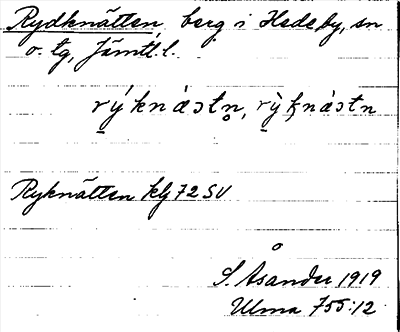 Rydknätten, berg i Hedeby, sn
o. tg, Jämtl. l.
rýknástn, rỳknástn
Ryknätten klj 72 SV
S. Åsander 1919
Ulma 755:12